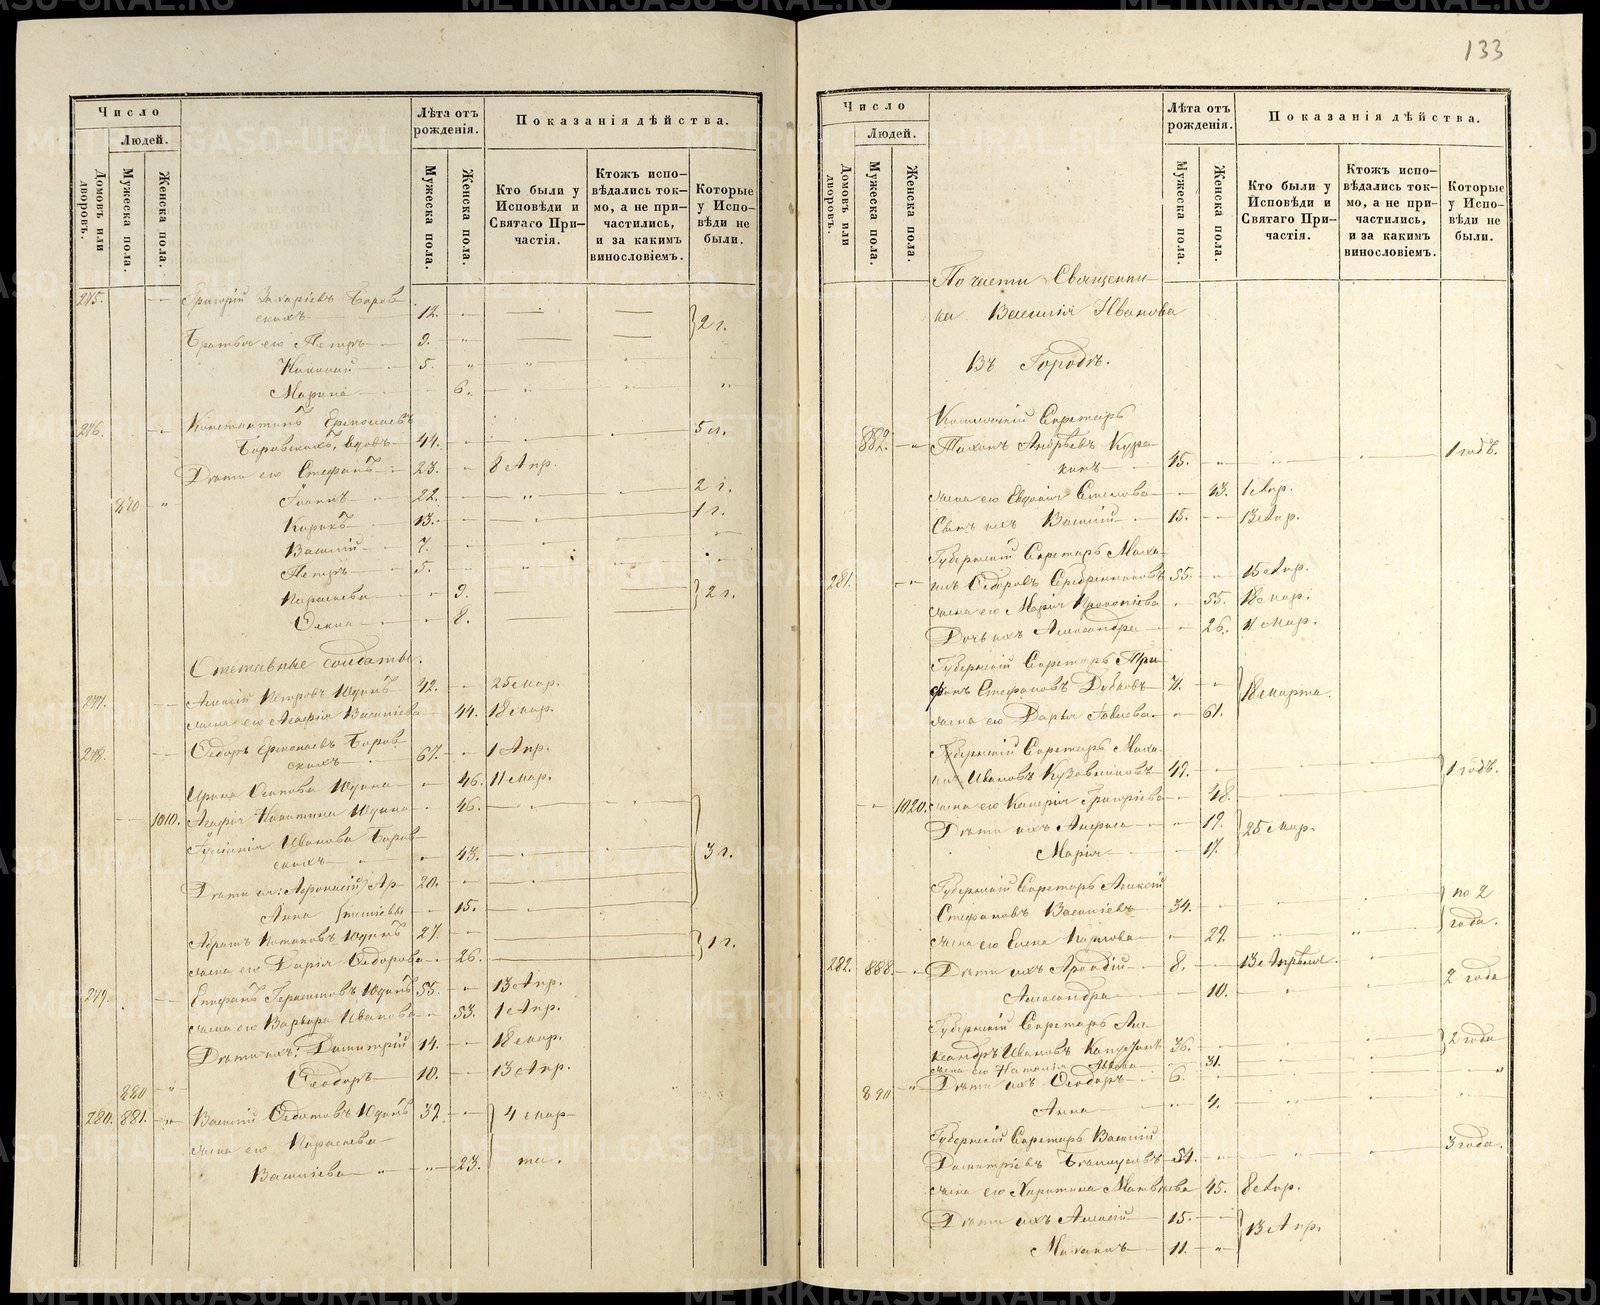 133
Число
Людей.
Домовъ или дворовъ.
Мужеска пола.
Женска пола.
Лѣта отъ рожденія.
Мужеска пола.
Женска пола.
Показанія дѣйства.
Кто были у Исповѣди и Святаго Причастія.
Ктожъ исповѣдались токмо, а не причастились, и за какимъ винословіемъ.
Которые у Исповѣди не были.
275. Григорій Захаріевъ Боров-
скихъ 12. 2 г.
Братья его Петръ 9.
5.
Марина 6.
276. Константинъ Ермолаевъ
Боровскихъ, вдовъ 44. 5 л.
Дѣти его Стефанъ 23. 8 Апр.
870 Іоаннъ 22. 2 г.
Кирикъ 13. 1 г.
Василій 7.
Петръ 5.
Параскева 9. 2 г.
Елена 8.
Отставные солдаты.
277. Алексій Петровъ Юдинъ 42. 25 мар.
жена его Агафія Васильева 44. 18 мар.
278. Ѳедоръ Ермолаевъ Боров-
скихъ 67. 1 Апр.
Ирина Осипова Юдина 46. 11 мар.
1010. Юдина 46.
Иванова Боров-
скихъ 43. 3 г.
Дѣти ея: Афонасій 20.
Анна 15.
Юдинъ 27. 1 г.
жена его Дарія Ѳедорова 26.
279. Юдинъ 55. 13 Апр.
жена его Варвара Иванова 53. 1 Апр.
Дѣти ихъ: Димитрій 14. 18 мар.
Ѳеодоръ 10. 13 Апр.
880
280. 881. Василій Юдинъ 32. 4 мар-
жена его Параскева
Васильева 23. та.
Число
Людей.
Домовъ или дворовъ.
Мужеска пола.
Женска пола.
Лѣта отъ рожденія.
Мужеска пола.
Женска пола.
Показанія дѣйства.
Кто были у Исповѣди и Святаго Причастія.
Ктожъ исповѣдались токмо, а не причастились, и за какимъ винословіемъ.
Которые у Исповѣди не были.
По части Священни-
ка Василія Иванова
Въ Городѣ.
Секретарь
882. Тихонъ Андреевъ Кура-
кинъ 45. 1 годъ.
жена его Евдокія 43. 1 Апр.
Сынъ ихъ Василій 15. 13 Апр.
Губернскій Секретарь Миха-
281. илъ Ѳедоровъ Серебрениковъ 55. 15 Апр.
жена его Марія Прокопіева 55. 18 мар.
Дочь ихъ Александра 26. 11 мар.
Губернскій Секретарь Три-
фонъ Стефановъ 71. 18 марта.
жена его Дарья 61.
Губернскій Секретарь Миха-
илъ Ивановъ Кузовниковъ 49. 1 годъ.
1020. жена его Григоріева 48.
Дѣти ихъ 19. 25 мар.
Марія 17.
Губернскій Секретарь Алексій
Стефановъ Василіевъ 34. по 2
жена его Елена Карпова 29. года.
282. 888. Дѣти ихъ Аркадій 8. 13 Апрѣля.
Александра 10. 2 года
Губернскій Секретарь Але-
ксандръ Ивановъ 36. 2 года
жена его Наталія 31.
890 Дѣти ихъ Ѳеодоръ 6.
Анна 4.
Губернскій Секретарь Василій
Димитріевъ 54. 3 года.
жена его Харитина Матвѣева 45. 8 Апр.
Дѣти ихъ Алексій 15. 13 Апр.
Михаилъ 11.
METRIKI.GASO-URAL.RU